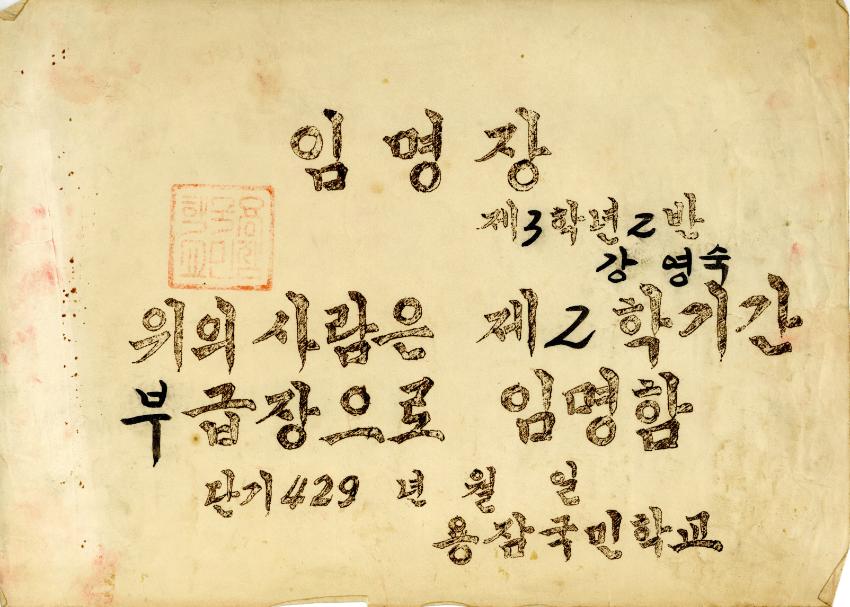 임명장
제3학년2반
강영숙
위의 사람은 제2학기간
부급장으로 임명함
단기429 년 월 일
용잠국민학교